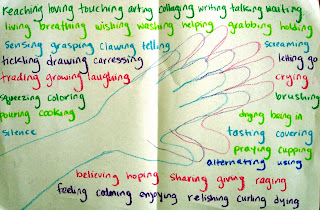 reaching loving touching arting collaging writing talking waiting
living breathing wishing washing helping grabbing holding
sensing grasping clawing telling screaming
tickling drawing carressing letting go
trading growing laughing crying
squeezing coloring brushing
pouring cooking drying being in
silence tasting covering
praying cupping
alternating using
believing hoping sharing giving raging
feeling calming enjoying relishing curling dying